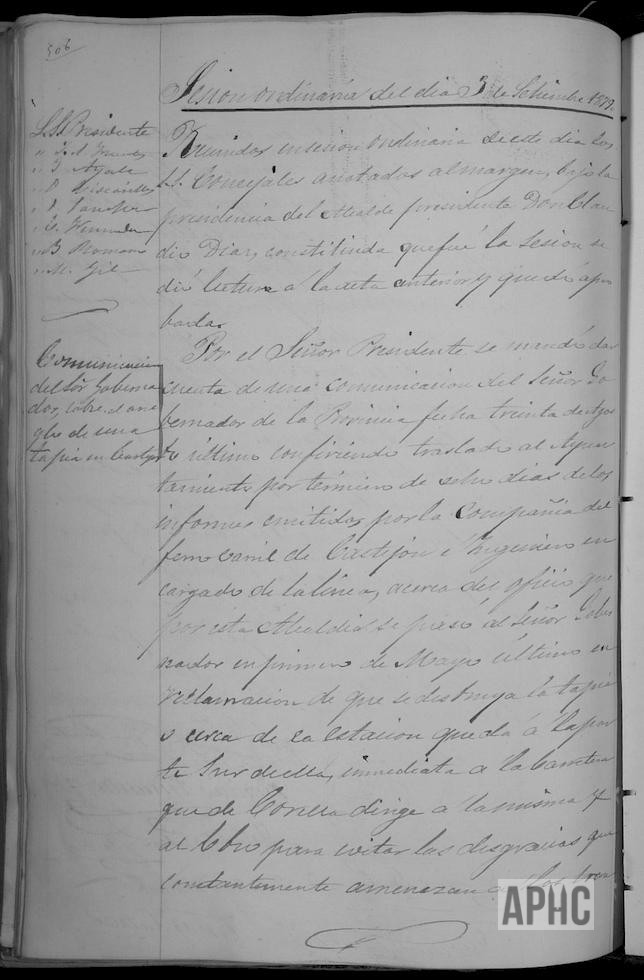 506
Sesion ordinaria del dia 3 de Setiembre 1879.
S.S. Presidente
" Ayala
" B. Romano
" M. Gil
Reunidos en sesion ordinaria de este dia los
S.S. Concejales anotados al margen, bajo la
presidencia del Alcalde presidente Don Clau
dio Diaz, constituida que fué la sesion se
dió lectura á la acta anterior y quedó apro
bada.
Comunicacion
del Sor. Goberna
dor, sobre el arre
glo de una
tapia en Castejon
Por el Señor Presidente se mandó dar
cuenta de una comunicacion del Señor Go
bernador de la Provincia fecha treinta de Agos
to último confiriendo traslado al Ayun
tamiento por término de ocho dias de los
informes emitidos por la Compañia del
ferro carril de Castejón é Ingeniero en
cargado de la linea, acerca del oficio que
por esta Alcaldia se pasó al Señor Gober
nador en primero de Mayo último en
reclamacion de que se destruya la tapia
o cerca de la estacion que dá á la par
te Sur de ella, inmediata a la carretera
que de Corella dirige a la misma y
al Ebro para evitar las desgracias que
constantemente amenazan a los tran
APHC